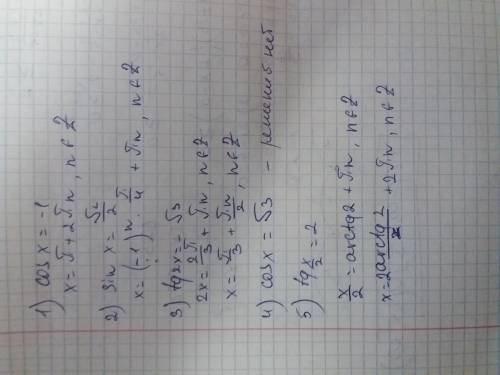 1) cos x = -1
x = π + 2πn, n ∈ Z
2) sin x = √2/2
x = (-1)^n · π/4 + πn, n ∈ Z
3) tg 2x = -√3
2x = 2π/3 + πn, n ∈ Z
x = π/3 + πn/2, n ∈ Z
4) cos x = √3 - решений нет
5) tg x/2 = 2
x/2 = arctg 2 + πn, n ∈ Z
x = 2arctg 2 + 2πn, n ∈ Z